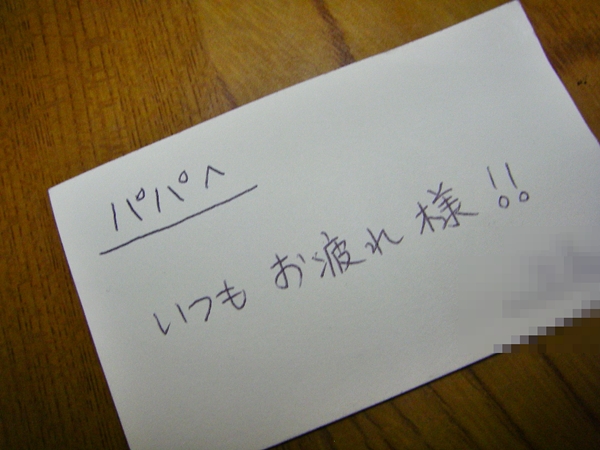 パパへ
いつもお疲れ様!!